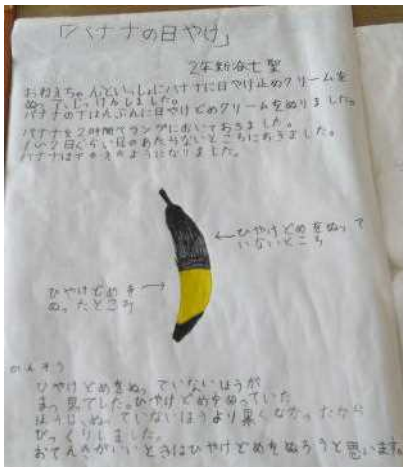 「バナナの日やけ」
2年
おねえちゃんといっしょにバナナに日やけ止めクリームを
ぬって、じっけんしました。
バナナの下はんぶんに日やけどめクリームをぬりました。
バナナを2時間てラシグにおいておきました。
日くらい日のあたらないところにおきました。
バナナは下のえのようになりました。
←ひやけどめをぬって
いないところ
ひやけどめを→
ぬったところ
かんそう
ひやけどめをぬっていないほうが
まっ黒でした。ひやけどめをぬっていた
ほうは、ぬっていないほうより黒くなかったから
びっくりしました。
おてんきがいいときはひやけどめをぬろうと思います。